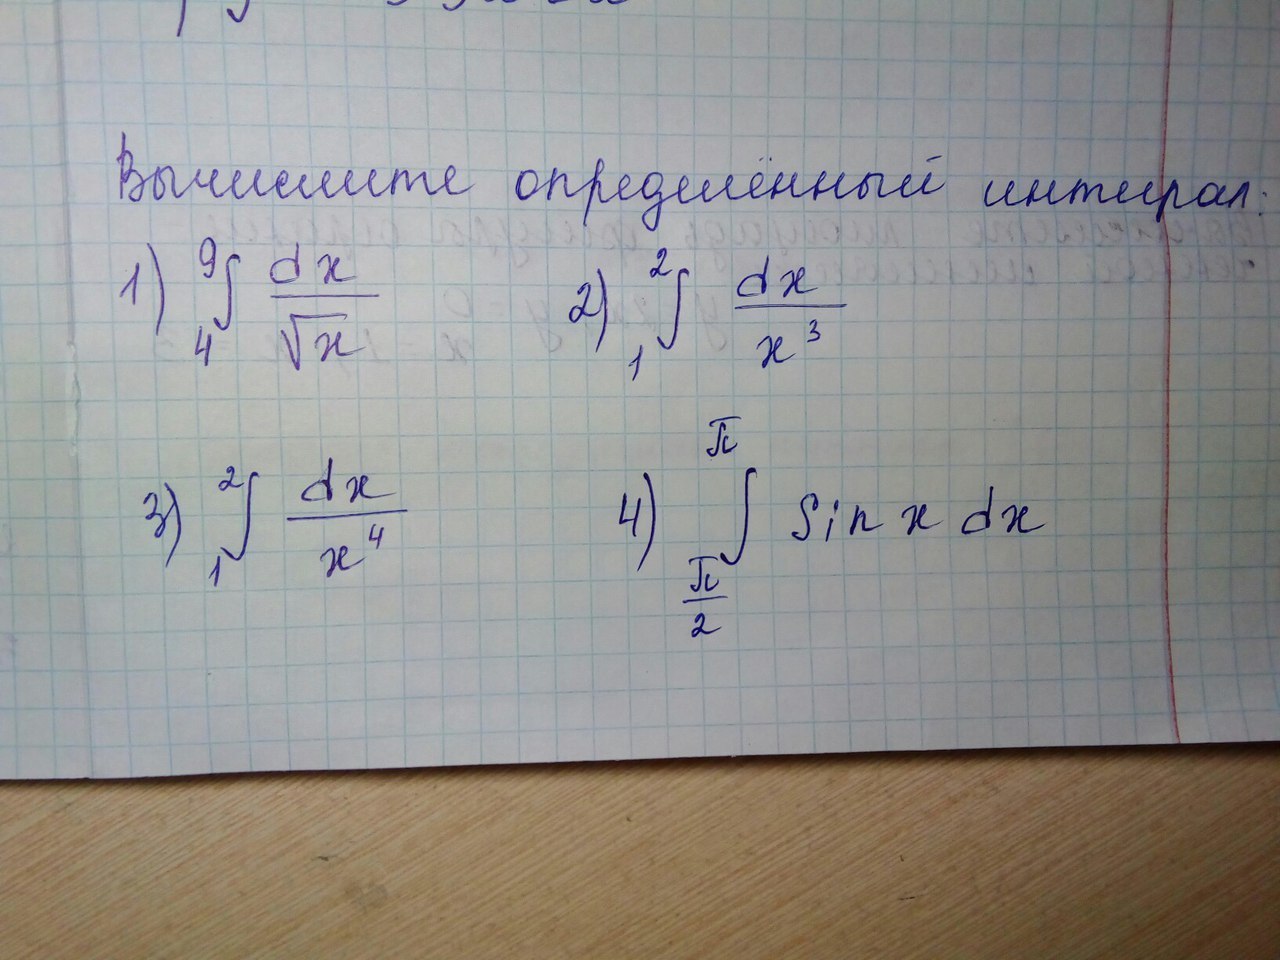 Вычислите определённый интеграл:
1) ⁹∫₄ dx/√x 2) ²∫₁ dx/x³
3) ²∫₁ dx/x⁴ 4) ∫ from π/2 to π sin x dx